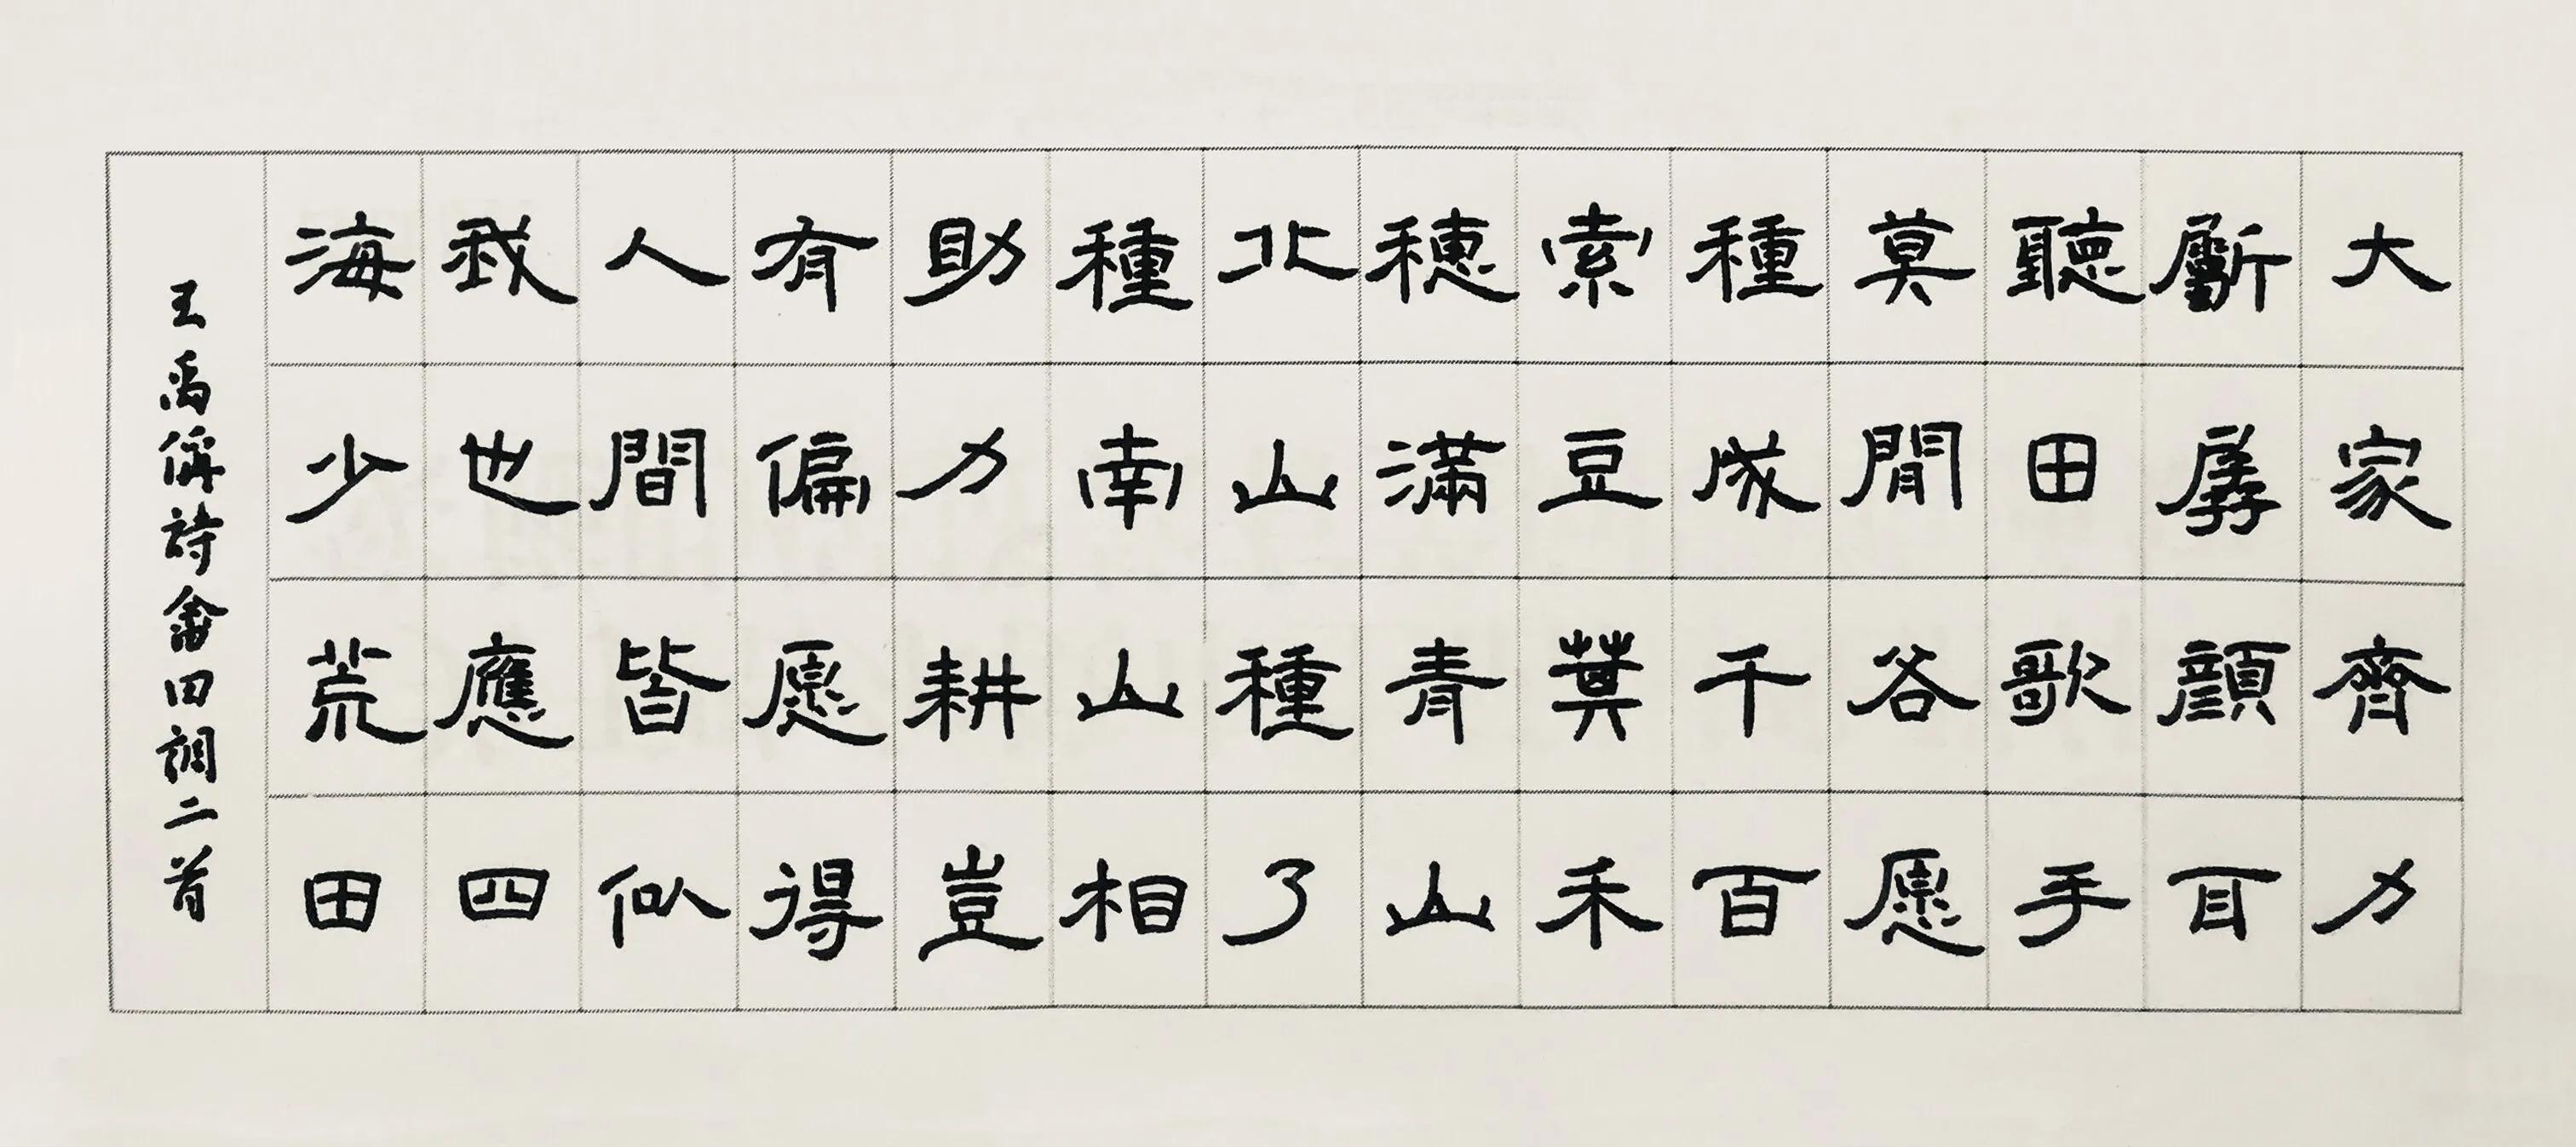 大家齊力
斸孱顏耳
聽田歌手
莫閒谷愿
種成千百
索豆萁禾
穗滿青山
北山種了
種南山相
助力耕豈
有偏愿得
人間皆似
我也應四
海少荒田
王禹偁詩畬田調二首